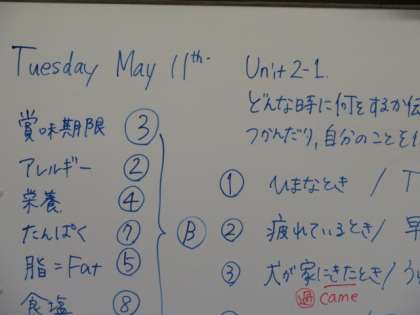 Tuesday May 11th. Unit 2-1.
どんな時に何をするか伝
つかんだり, 自分のことを
賞味期限 ③
アレルギー ②
栄養 ④
たんぱく ⑦
脂=Fat ⑤
食塩 ⑧
Ⓑ
① ひまなとき / T
② 疲れているとき/ 早
③ 犬が家にきたとき/ う
過 came